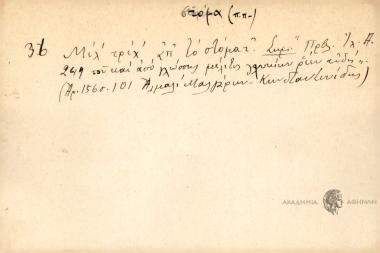 στόμα (π.π.)
36 Μέλ' τρέχ' ἀπ' τὸ στόμα τ'. Σημ. Πρβ. Ἰλ. Α.
249 τοῦ καὶ ἀπὸ γλώσσης μέλιτος γλυκίων ῥέεν αὐδή".
(Ἀρ. 156 σ. 101 Μαλγάρων - Κωνσταντινίδης)
ΑΚΑΔΗΜΙΑ ΑΘΗΝΩΝ